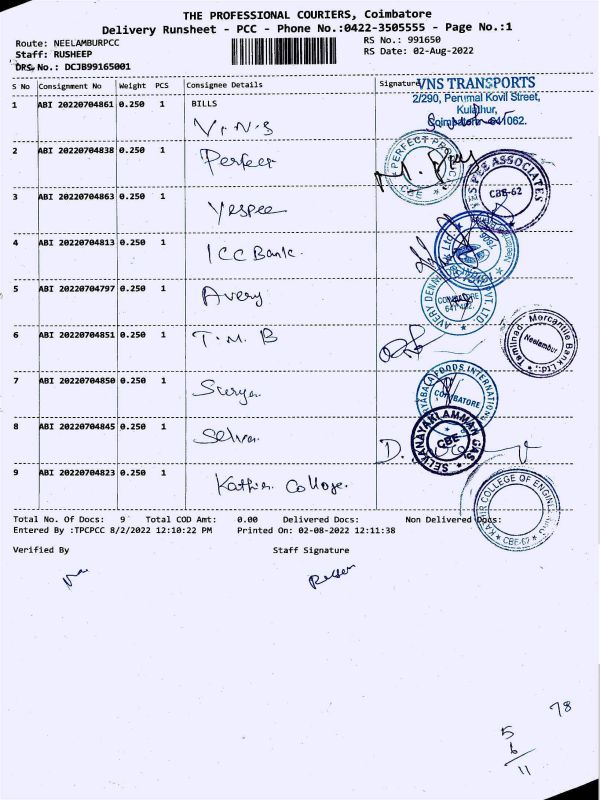 THE PROFESSIONAL COURIERS, Coimbatore
Delivery Runsheet - PCC - Phone No.:0422-3505555 - Page No.:1
Route: NEELAMBURPCC
RS No.: 991650
Staff: RUSHEEP
RS Date: 02-Aug-2022
DRS No.: DCJB99165001
S No Consignment No Weight PCS Consignee Details Signature
VNS TRANSPORTS
2/290, Perumal Kovil Street,
Kulathur,
Coimbatore - 641062.
1 ABI 20220704861 0.250 1 BILLS
V.N.S
2 ABI 20220704838 0.250 1 Perfect
PERFECT
CBE
3 ABI 20220704863 0.250 1 Yespee
YES PEE ASSOCIATES
CBE-62
4 ABI 20220704813 0.250 1 ICC Bank.
5 ABI 20220704797 0.250 1 Avery
AVERY DENN PVT. LTD
COIMBATORE
6 ABI 20220704851 0.250 1 T.M.B
Tamilnad Mercantile Bank Ltd.
Neelambur
7 ABI 20220704850 0.250 1 Surya
FOODS INTERNATIONAL
COIMBATORE
8 ABI 20220704845 0.250 1 Selva
SELVANAYAKI AMMAN GAS
CBE
9 ABI 20220704823 0.250 1 Kathir College.
KATHIR COLLEGE OF ENGINEERING
CBE-62
Total No. Of Docs: 9 Total COD Amt: 0.00 Delivered Docs: Non Delivered Docs:
Entered By :TPCPCC 8/2/2022 12:10:22 PM Printed On: 02-08-2022 12:11:38
Verified By Staff Signature
78
5
6
11